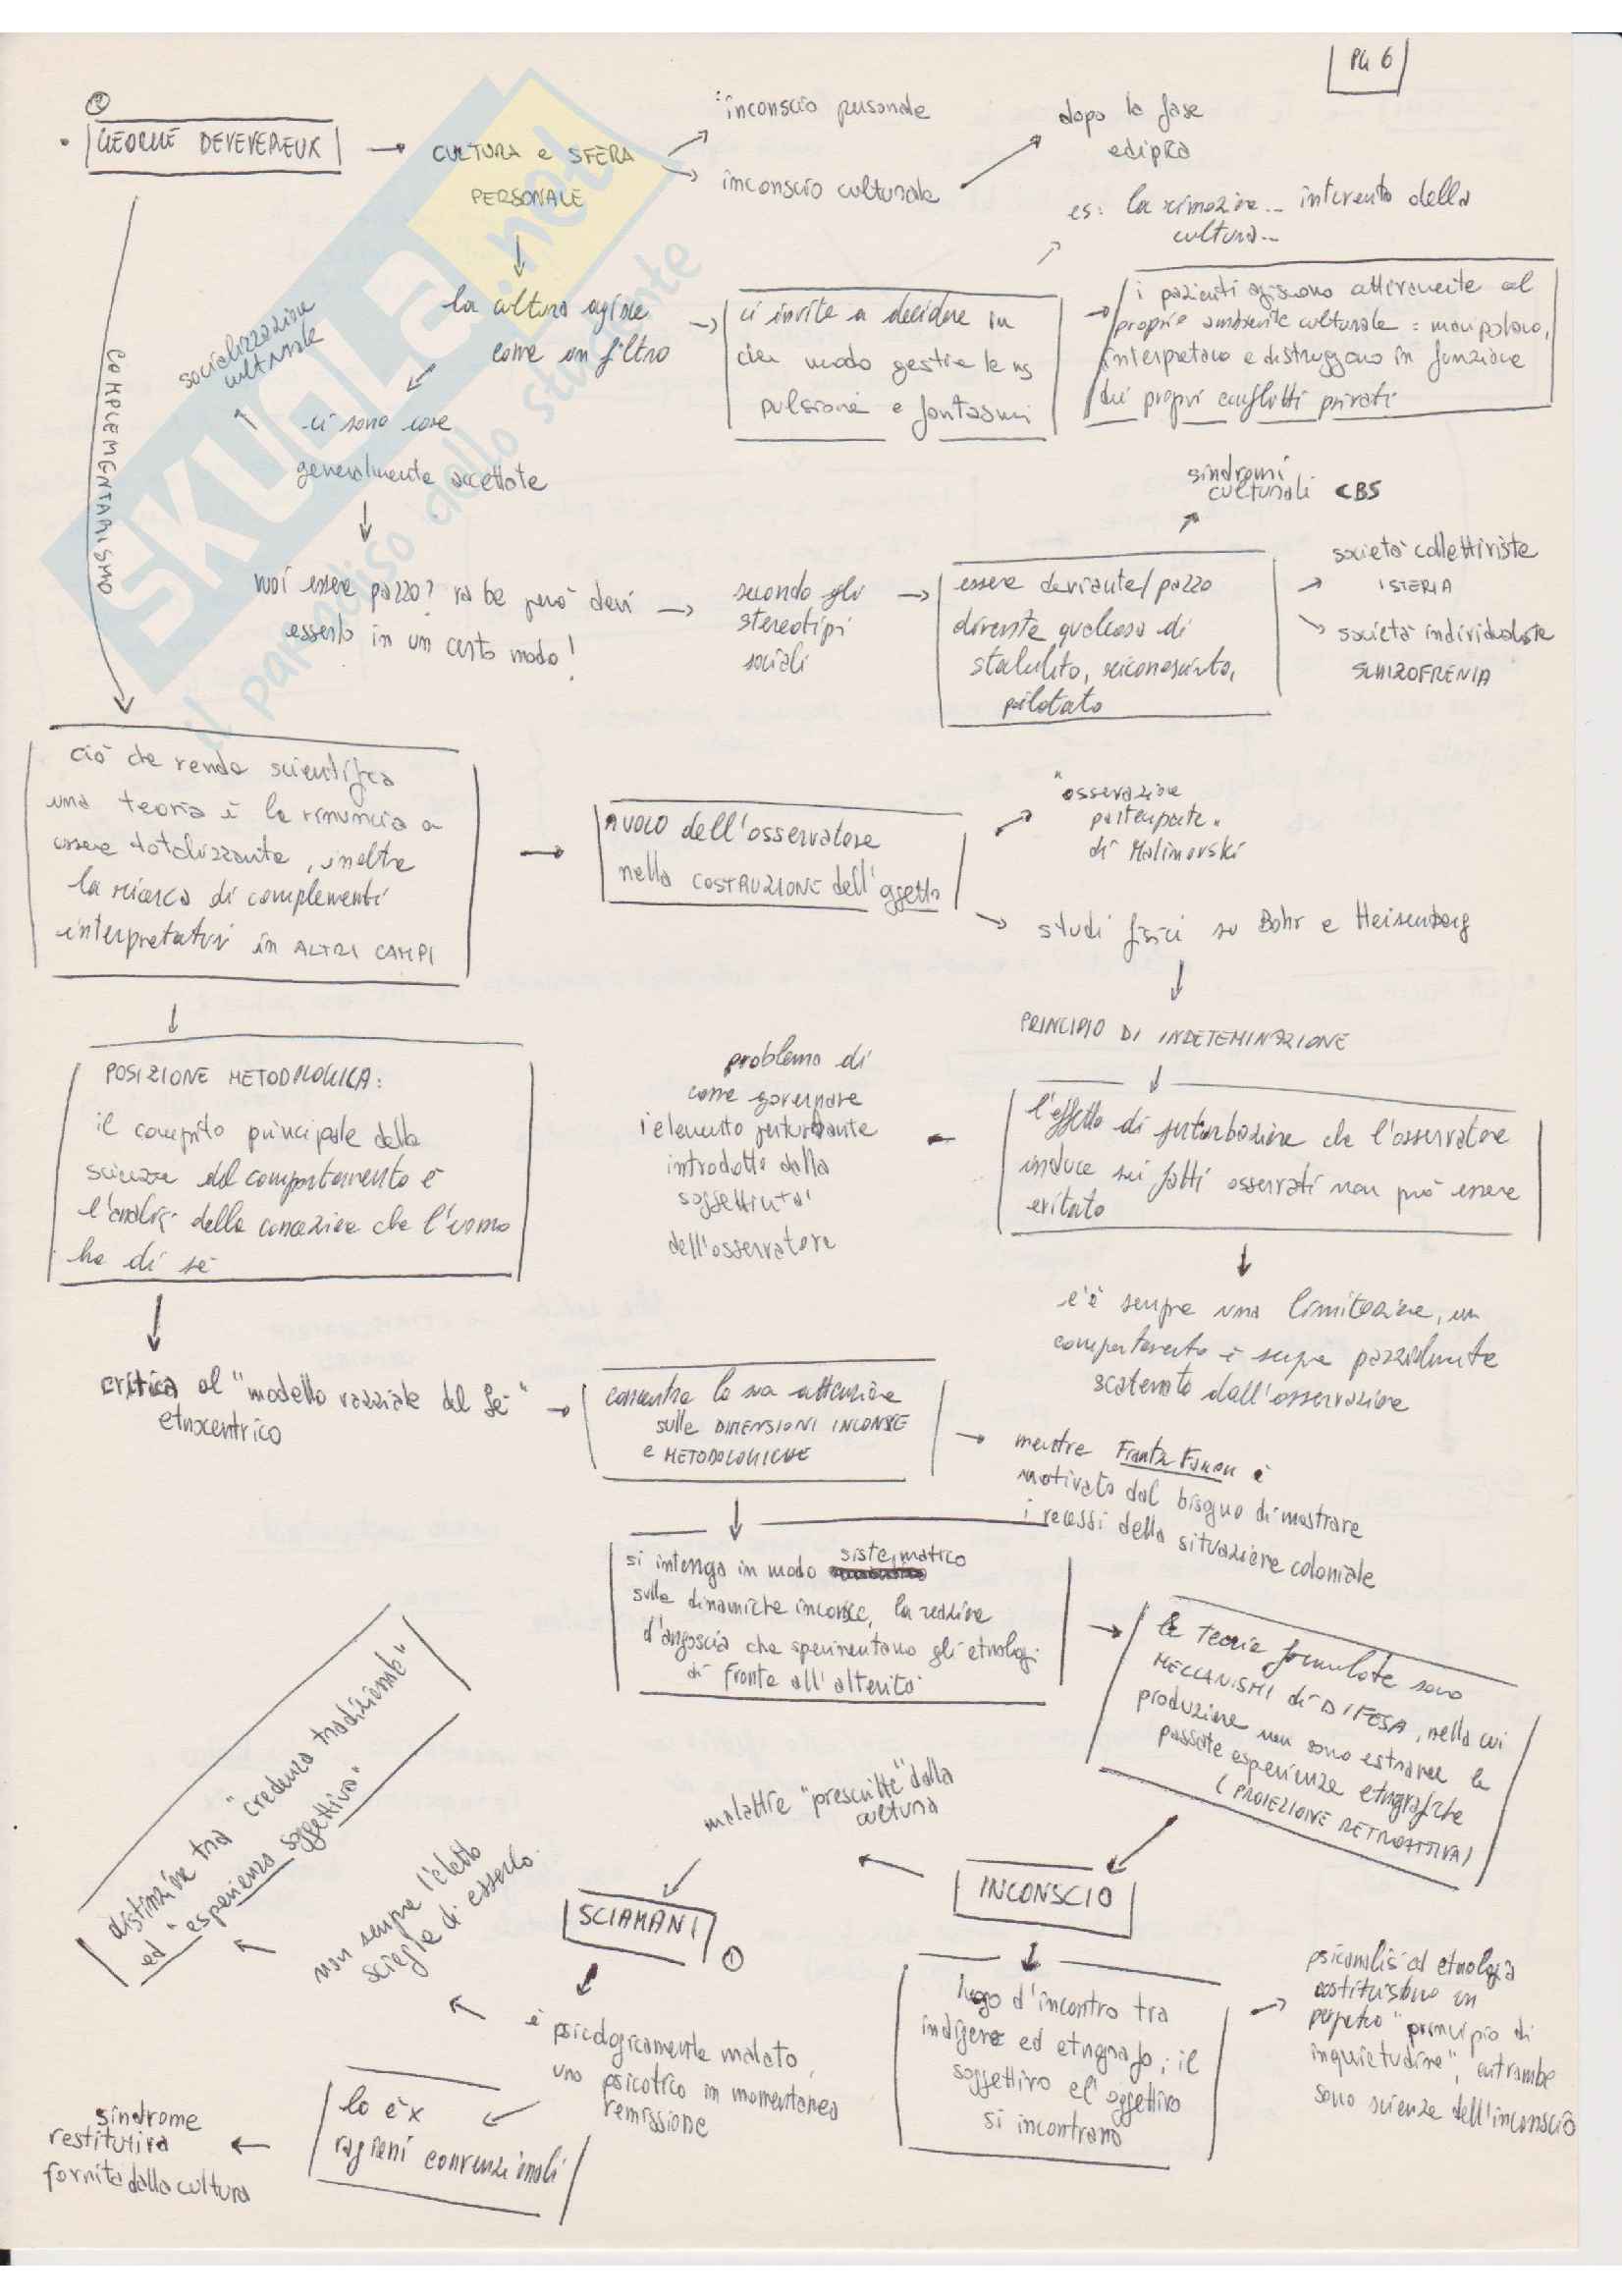 PG 6
②
GEORGE DEVEVEREUX
CULTURA e SFERA
PERSONALE
inconscio personale
inconscio culturale
dopo la fase
edipica
es: la rimozione... intervento della
cultura...
COMPLEMENTARISMO
la cultura agisce
come un filtro
socializzazione
culturale
ci sono cose
generalmente accettate
ci invita a decidere in
che modo gestire le ns
pulsioni e fantasmi
i pazienti agiscono attivamente al
proprio ambiente culturale: manipolano,
interpretano e distruggono in funzione
dei propri conflitti privati
vuoi essere pazzo? va be però devi
esserlo in un certo modo!
secondo gli
stereotipi
sociali
essere deviante/pazzo
diventa qualcosa di
stabilito, riconosciuto,
pilotato
sindromi
culturali CBS
società collettiviste
ISTERIA
società individualiste
SCHIZOFRENIA
ciò che rende scientifica
una teoria è la rinuncia a
essere totalizzante, inoltre
la ricerca di complementi
interpretativi in ALTRI CAMPI
RUOLO dell'osservatore
nella COSTRUZIONE dell'oggetto
"osservazione
partecipante"
di Malinovski
studi fisici su Bohr e Heisenberg
PRINCIPIO DI INDETEMINAZIONE
l'effetto di perturbazione che l'osservatore
induce sui fatti osservati non può essere
evitato
problema di
come governare
l'elemento perturbante
introdotto dalla
soggettività
dell'osservatore
c'è sempre una limitazione, un
comportamento è sempre parzialmente
scatenato dall'osservazione
POSIZIONE METODOLOGICA:
il compito principale delle
scienze del comportamento è
l'analisi della concezione che l'uomo
ha di sé
critica al "modello razziale del Sé"
etnocentrico
concentra la sua attenzione
sulle DIMENSIONI INCONSCE
e METODOLOGICHE
mentre Frantz Fanon è
motivato dal bisogno di mostrare
i recessi della situazione coloniale
si interroga in modo sistematico
sulle dinamiche inconsce, la reazione
d'angoscia che sperimentano gli etnologi
di fronte all'alterità
le teorie formulate sono
MECCANISMI di DIFESA, nella cui
produzione non sono estranee le
passate esperienze etnografiche
(PROIEZIONE RETROATTIVA)
INCONSCIO
malattie "prescritte" dalla
cultura
SCIAMANI
①
luogo d'incontro tra
indigeno ed etnografo; il
soggettivo e l'oggettivo
si incontrano
psicanalisi ed etnologia
costituiscono un
perpetuo "principio di
inquietudine", entrambe
sono scienze dell'inconscio
è psicologicamente malato,
uno psicotico in momentanea
remissione
non sempre l'eletto
sceglie di esserlo.
distinzione tra "credenza tradizionale"
ed "esperienza soggettiva"
lo è x
ragioni convenzionali
sindrome
restitutiva
fornita dalla cultura
SKUOLA.net
il paradiso dello studente